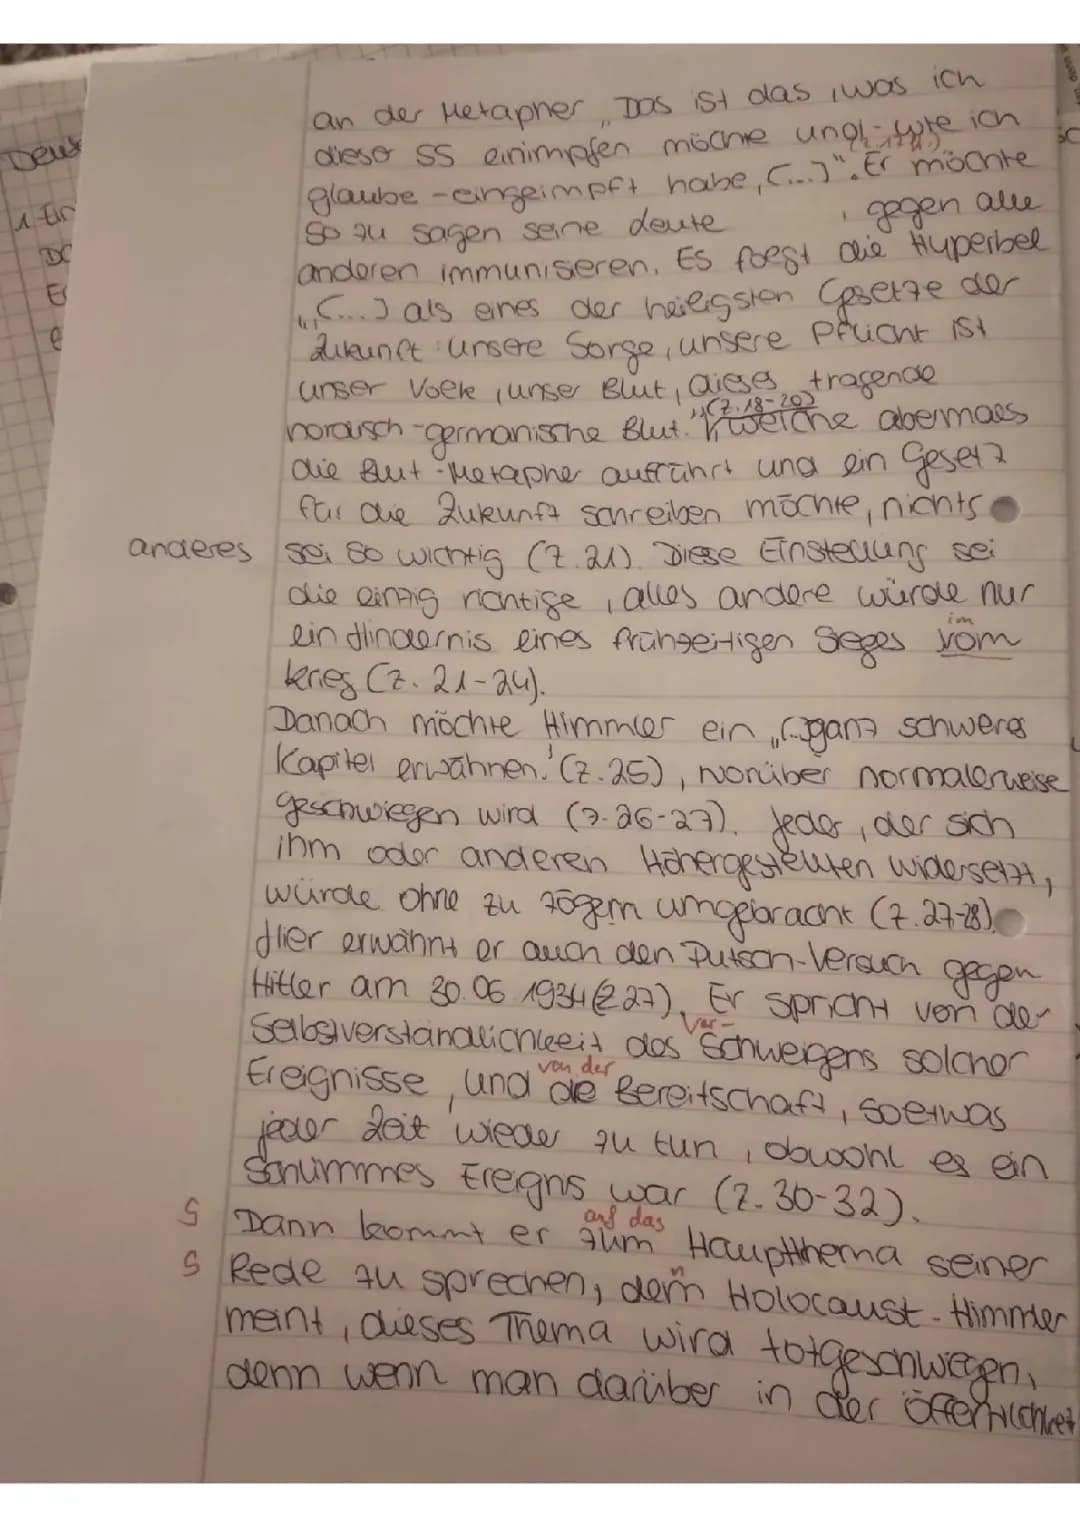 an der Metapher „Das ist das, was ich
dieser SS einimpfen möchte und - wie ich
glaube - eingeimpft habe, (...)". Er möchte
so zu sagen seine Leute , gegen alle
anderen immunisieren. Es folgt die Hyperbel
„(...) als eines der heiligsten Gesetze der
Zukunft: unsere Sorge, unsere Pflicht ist
unser Volk, unser Blut, dieses tragende
nordisch-germanische Blut." (Z.18-20), welche abermals
die Blut-Metapher aufführt und ein Gesetz
für die Zukunft schreiben möchte, nichts
anderes sei so wichtig (Z.21). Diese Einstellung sei
die einzig richtige, alles andere würde nur
ein Hindernis eines frühzeitigen Sieges vom
im
Krieg (Z. 21-24).
Danach möchte Himmler ein „(...)ganz schweres
Kapitel erwähnen." (Z.25), worüber normalerweise
geschwiegen wird (Z.26-27). Jeder, der sich
ihm oder anderen Höhergestellten widersetzt,
würde ohne zu zögern umgebracht (Z.27-28).
Hier erwähnt er auch den Putsch-Versuch gegen
Hitler am 30.06.1934 (Z.27). Er spricht von der
Selbstverständlichkeit des Schweigens solcher
Ver-
Ereignisse, und die Bereitschaft, soetwas
von der
jeder Zeit wieder zu tun, obwohl es ein
schlimmes Ereignis war (Z. 30-32).
S Dann kommt er zum Hauptthema seiner
auf das
S Rede zu sprechen, dem Holocaust. Himmler
n
meint, dieses Thema wird totgeschwiegen,
denn wenn man darüber in der Öffentlichkeit
Deuts
1. Ein